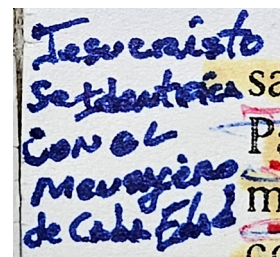 Jesucristo
Se Identifica sa
CON el P
Mensajero m
de Cada Edad